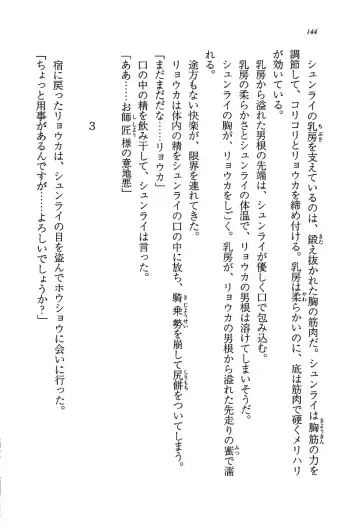 144
シュンライの乳房を支えているのは、鍛え抜かれた胸の筋肉だ。シュンライは胸筋の力を
調節して、コリコリとリョウカを締め付ける。乳房は柔らかいのに、底は筋肉で硬くメリハリ
が効いている。
乳房から溢れた男根の先端は、シュンライが優しく口で包み込む。
乳房の柔らかさとシュンライの体温で、リョウカの男根は溶けてしまいそうだ。
シュンライの胸が、リョウカをしごく。乳房が、リョウカの男根から溢れた先走りの蜜で濡
れる。
途方もない快楽が、限界を連れてきた。
リョウカは体内の精をシュンライの口の中に放ち、騎乗勢を崩して尻餅をついてしまう。
「まだまだだな……リョウカ」
口の中の精を飲み干して、シュンライは言った。
「ああ……お師匠様の意地悪」
3
宿に戻ったリョウカは、シュンライの目を盗んでホウショウに会いに行った。
「ちょっと用事があるんですが……よろしいでしょうか？」